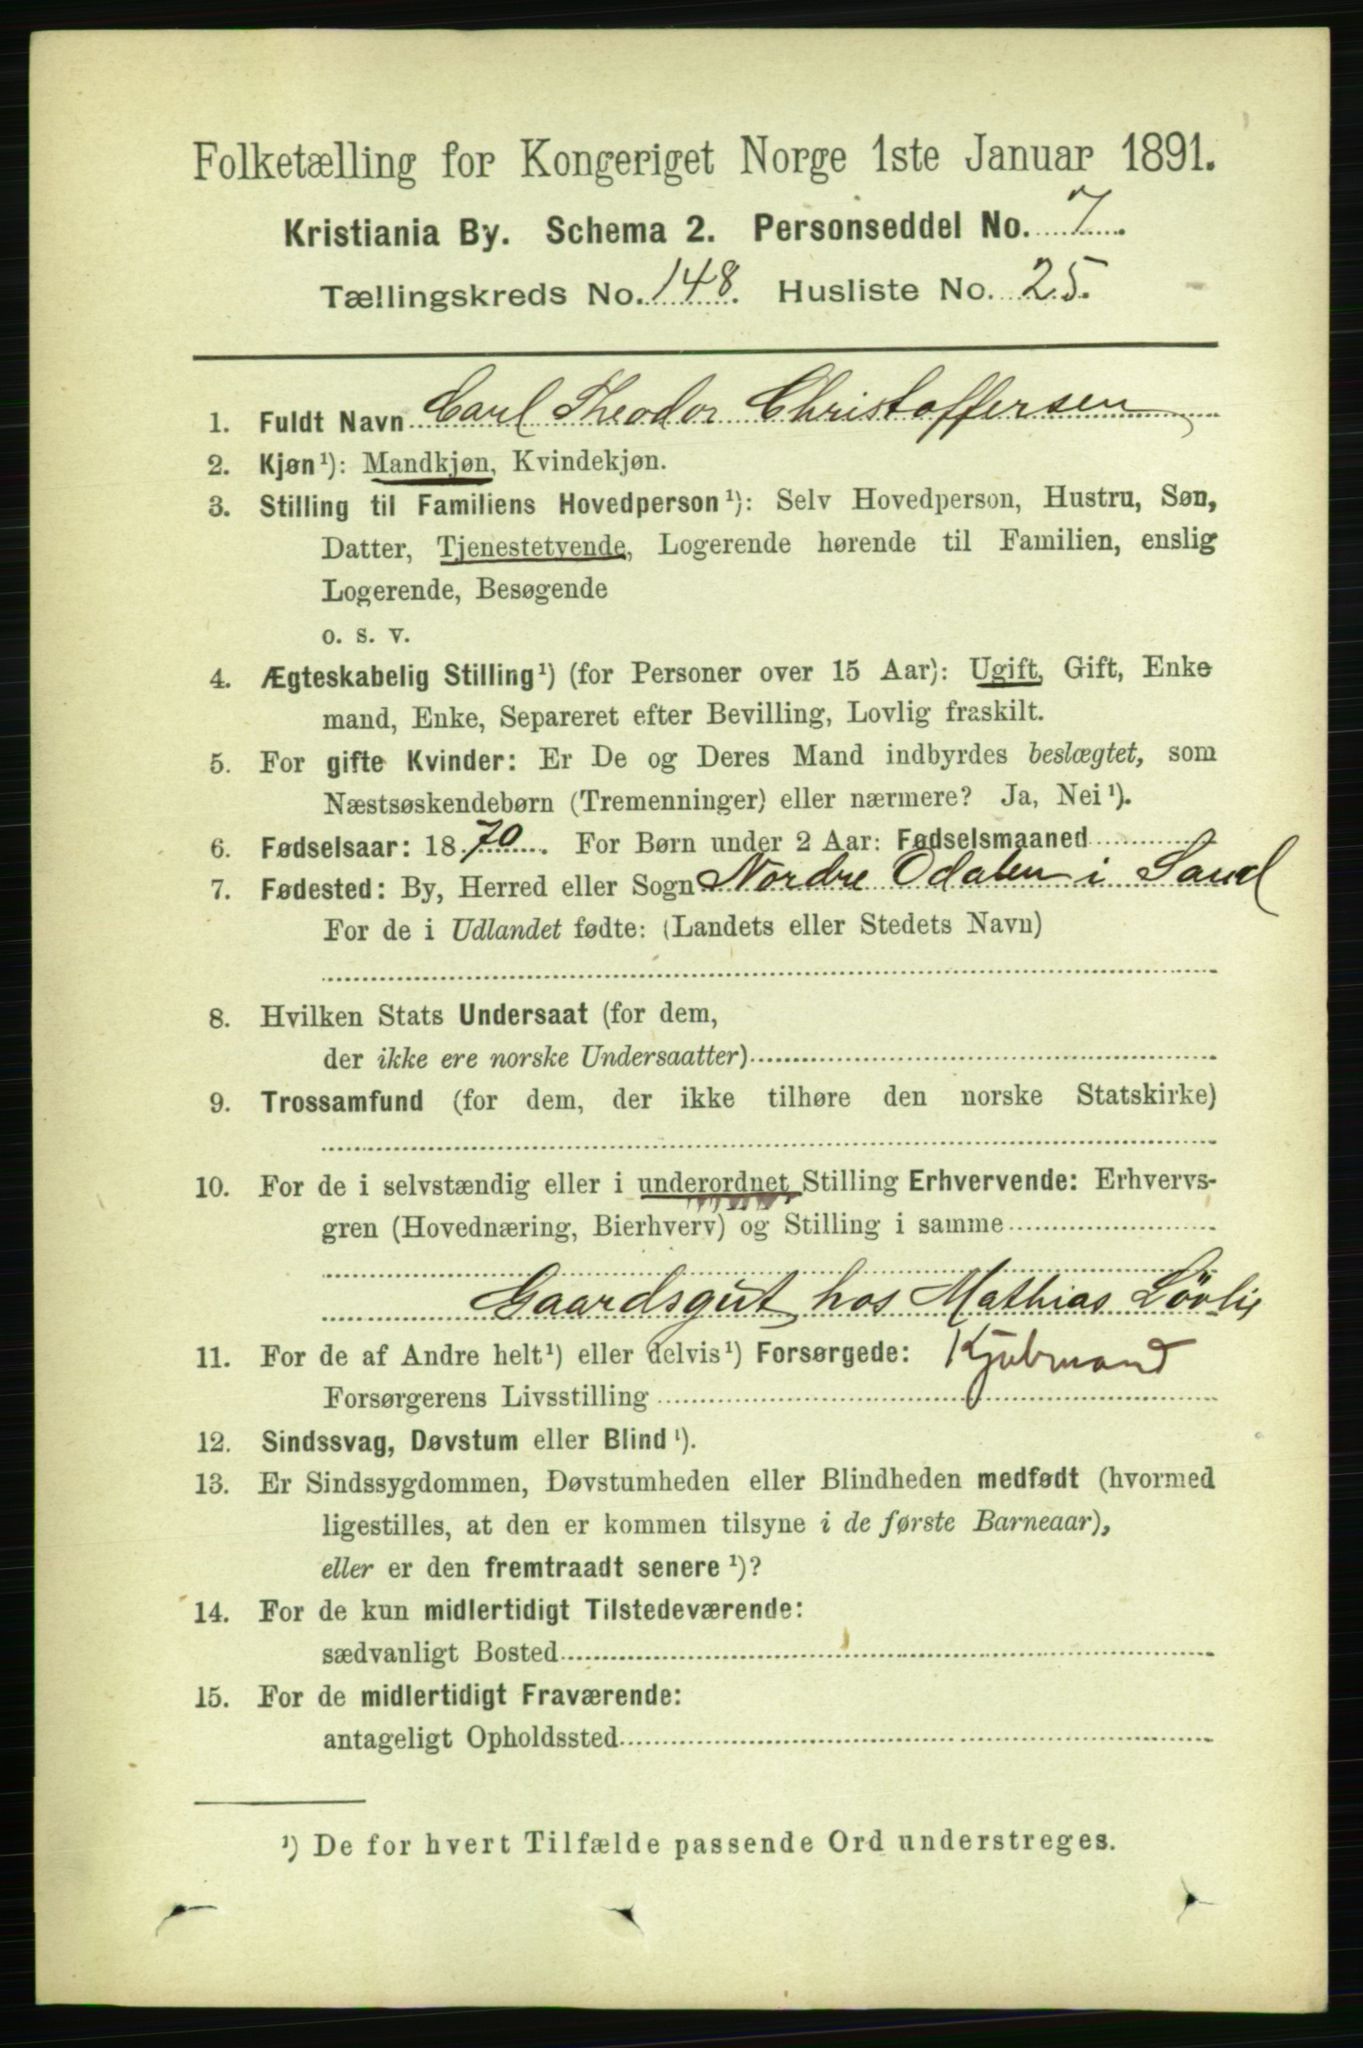 Folketælling for Kongeriget Norge 1ste Januar 1891.
Kristiania By. Schema 2. Personseddel No. 7.
Tællingskreds No. 148. Husliste No. 25.
1. Fuldt Navn Carl Theodor Christoffersen
2. Kjøn¹): Mandkjøn, Kvindekjøn.
3. Stilling til Familiens Hovedperson¹): Selv Hovedperson, Hustru, Søn,
Datter, Tjenestetyende, Logerende hørende til Familien, enslig
Logerende, Besøgende
o. s. v.
4. Ægteskabelig Stilling¹) (for Personer over 15 Aar): Ugift, Gift, Enke
mand, Enke, Separeret efter Bevilling, Lovlig fraskilt.
5. For gifte Kvinder: Er De og Deres Mand indbyrdes beslægtet, som
Næstsøskendebørn (Tremenninger) eller nærmere? Ja, Nei¹).
6. Fødselsaar: 1870. For Børn under 2 Aar: Fødselsmaaned
7. Fødested: By, Herred eller Sogn Nordre Odalen i Sand
For de i Udlandet fødte: (Landets eller Stedets Navn)
8. Hvilken Stats Undersaat (for dem,
der ikke ere norske Undersaatter)
9. Trossamfund (for dem, der ikke tilhøre den norske Statskirke)
10. For de i selvstændig eller i underordnet Stilling Erhvervende: Erhvervs-
gren (Hovednæring, Bierhverv) og Stilling i samme
Gaardsgut hos Mathias Lövlie
11. For de af Andre helt¹) eller delvis¹) Forsørgede: Kjøbmand
Forsørgerens Livsstilling
12. Sindssvag, Døvstum eller Blind¹).
13. Er Sindssygdommen, Døvstumheden eller Blindheden medfødt (hvormed
ligestilles, at den er kommen tilsyne i de første Barneaar),
eller er den fremtraadt senere¹)?
14. For de kun midlertidigt Tilstedeværende:
sædvanligt Bosted
15. For de midlertidigt Fraværende:
antageligt Opholdssted
¹) De for hvert Tilfælde passende Ord understreges.